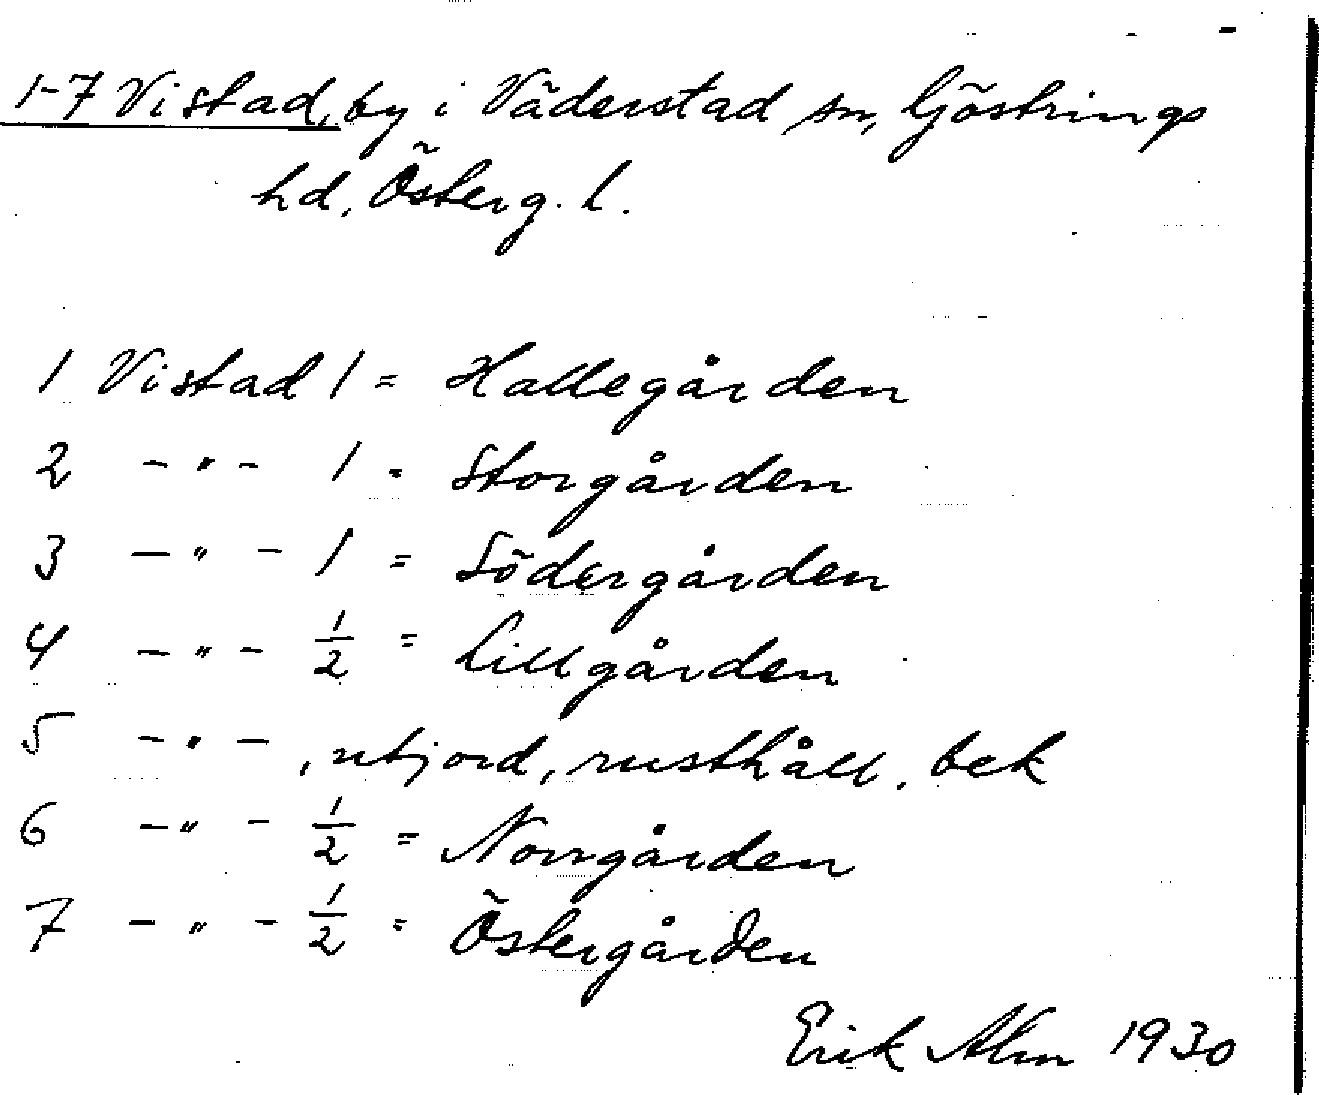 1-7 Vistad, by i Väderstad sn, Göstrings
hd, Österg. l.
1 Vistad 1 = Hallegården
2 -"- 1 = Storgården
3 -"- 1 = Södergården
4 -"- 1/2 = Lillgården
5 -"-, utjord, rusthåll. bek
6 -"- 1/2 = Norrgården
7 -"- 1/2 = Östergården
Erik Alm 1930